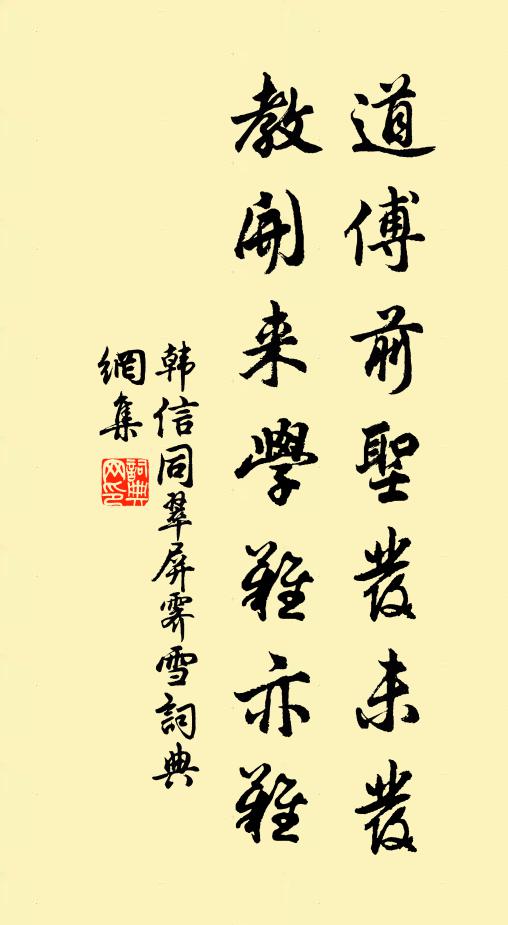 道傅前聖發未發
教開来學難亦難
韩信同翠屏霽雪詞典
網集
詞典
网印